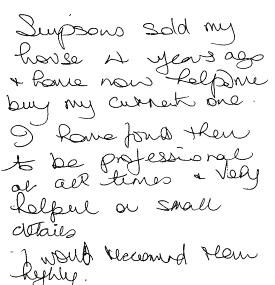 Simpsons sold my
house 4 years ago
& have now helped me
buy my current one.
I have found them
to be professional
at all times & very
helpful on small
details
I would recommend them
highly.